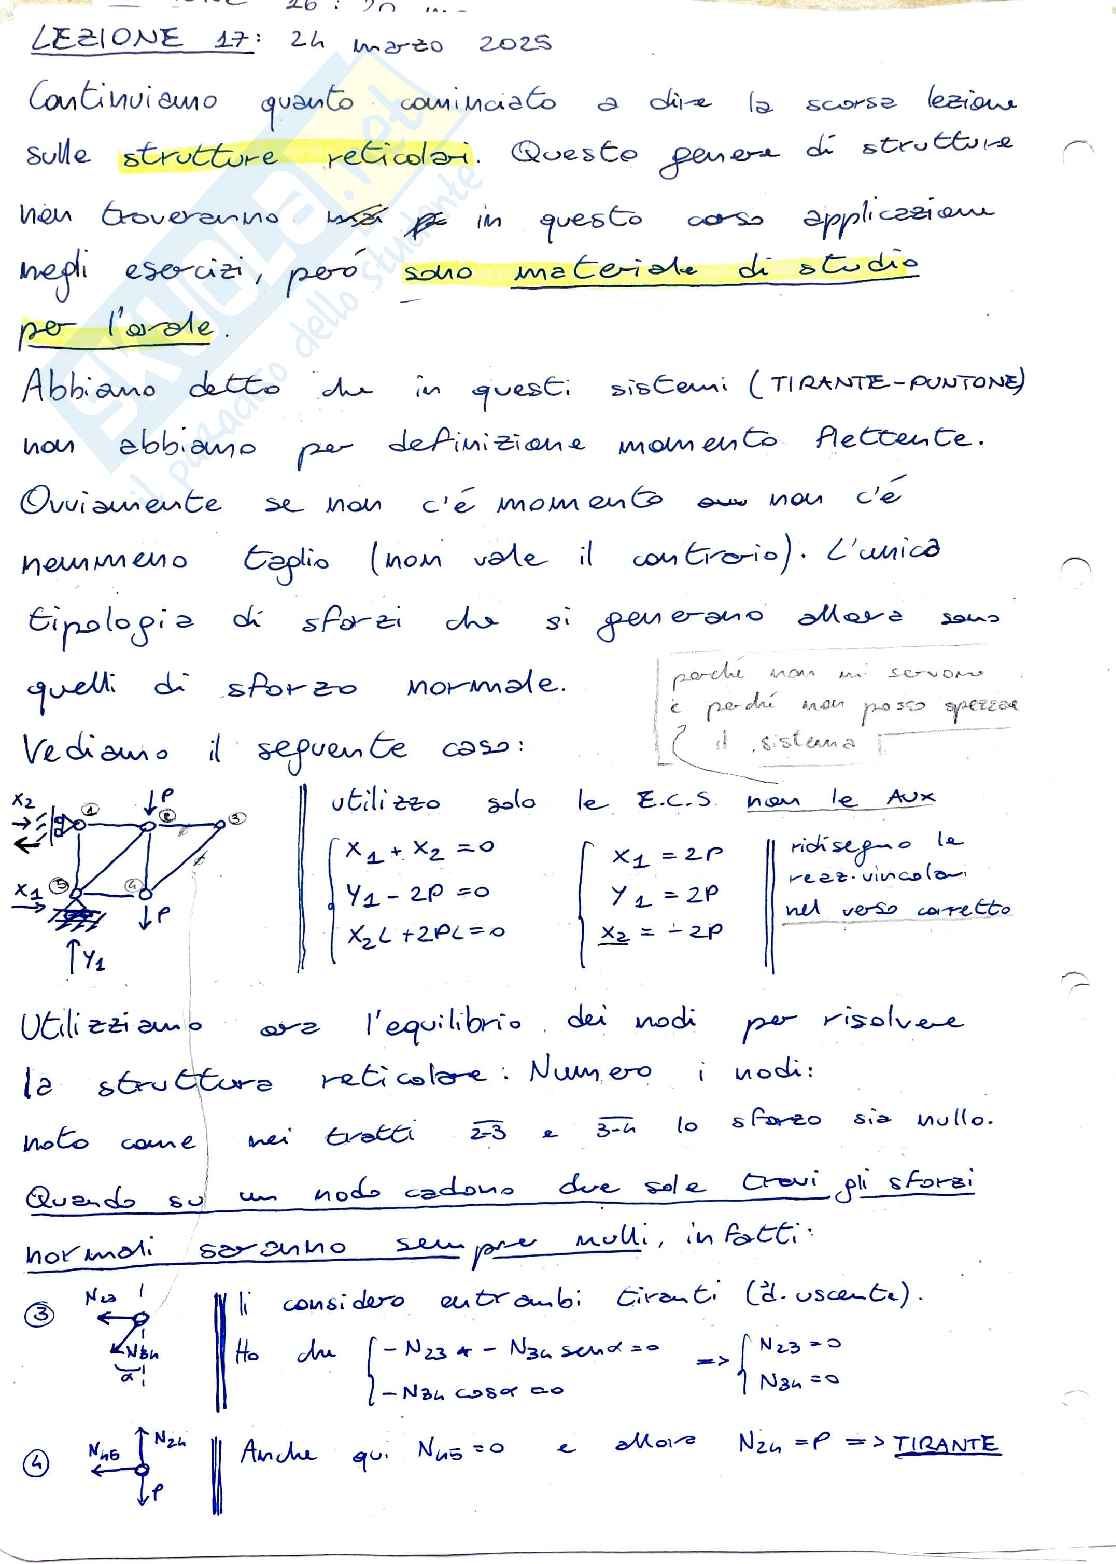 LEZIONE 17: 24 marzo 2025
Continuiamo quanto cominciato a dire la scorsa lezione
sulle strutture reticolari. Questo genere di strutture
non troveranno in questo corso applicazione
negli esercizi, però sono materiale di studio
per l'orale.
Abbiamo detto che in questi sistemi (TIRANTE-PUNTONE)
non abbiamo per definizione momento flettente.
Ovviamente se non c'é momento non c'é
nemmeno taglio (non vale il contrario). L'unica
tipologia di sforzi che si generano allora sono
quelli di sforzo normale.
perché non mi servono
e perché non posso spezzare
il sistema
Vediamo il seguente caso:
X2 1 P 2 3
5 4 X1 P
Y1
utilizzo solo le E.C.S. non le AUX
X1 + X2 = 0
Y1 - 2P = 0
X2L + 2PL = 0
X1 = 2P
Y1 = 2P
X2 = -2P
ridisegno le
reaz. vincolari
nel verso corretto
Utilizziamo ora l'equilibrio dei nodi per risolvere
la struttura reticolare. Numero i nodi:
noto come nei tratti 2-3 e 3-4 lo sforzo sia nullo.
Quando su un nodo cadono due sole travi gli sforzi
normali saranno sempre nulli, infatti:
3 N23 N34 α
li considero entrambi tiranti (d. uscente).
Ho che -N23 - N34 senα = 0 => N23 = 0
-N34 cosα = 0 N34 = 0
4 N45 N24 P
Anche qui N45 = 0 e allora N24 = P => TIRANTE
SKUOLA.net
il paradiso dello studente